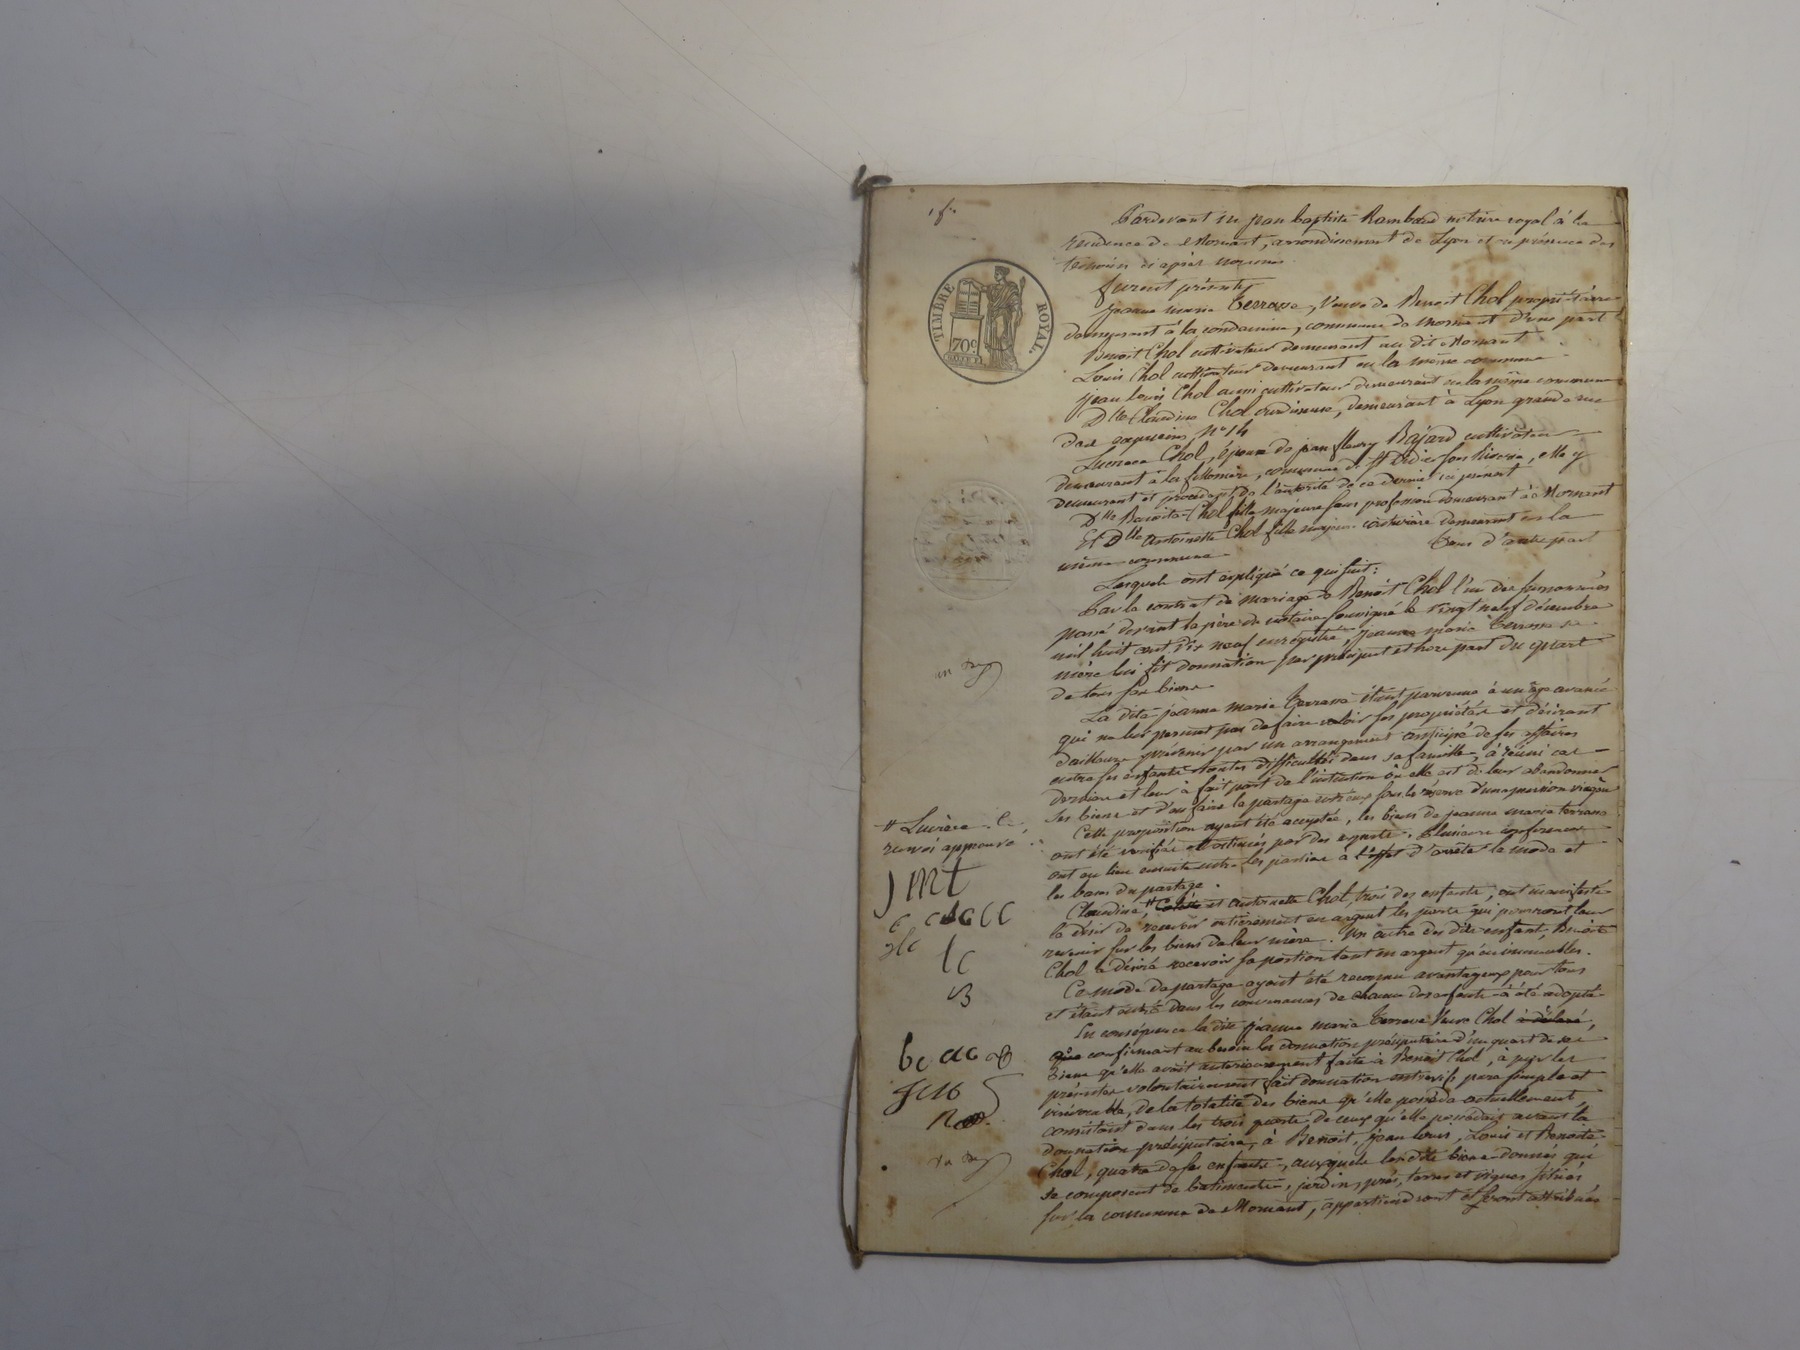 1 f.
TIMBRE ROYAL.
70c
Pardevant Me jean baptiste Rambaud notaire royal à la
residence de Mornant, arrondissement de Lyon et en présence des
témoins ci après nommés
furent présents
Jeanne marie Terrasse, Veuve de Benoit Chol propriétaire
demeurant à la condamine, commune de Mornant d'une part
Benoit Chol cultivateur demeurant au dit Mornant
Louis Chol cultivateur demeurant en la même commune
Jean Louis Chol aussi cultivateur demeurant en la même commune
Dlle Claudine Chol ourdisseuse, demeurant à Lyon grande rue
des capucins, No 14
Lucrece Chol, épouse de jean fleury Bajard cultivateur
demeurant à la commune de St Didier sous Riverie, elle y
demeurant et procédant de l'autorité de ce dernier ici présent
Dlle Benoite Chol fille majeure sans profession demeurant à Mornant
Et Dlle antoinette Chol fille majeure couturière demeurant en la
même commune
Tous d'autre part
Lesquels ont expliqué ce qui suit:
Par le contrat de mariage de Benoit Chol l'un des susnommés
passé devant le père du notaire soussigné le vingt neuf décembre
mil huit cent dix neuf enregistré, Jeanne marie Terrasse sa
mère lui fit donnation par préciput et hors part du quart
de tous ses biens
La dite jeanne marie Terrasse étant parvenue à un âge avancé
qui ne lui permet pas de faire valoir ses propriétés et désirant
d'ailleurs prévenir par un arrangement anticipé de ses affaires
entre ses enfants toutes difficultés dans sa famille, à réuni ces
derniers et leur à fait part de l'intention où elle est de leur abandonner
ses biens et d'en faire le partage entr'eux sous la réserve d'une pension viagère
Cette proposition ayant été acceptée, les biens de jeanne marie terrasse
ont été vérifiés et estimés par des experts. Plusieurs conférences
ont eu lieu ensuite entre les parties à l'effet d'arrêter le mode et
les bases du partage.
Claudine, # et antoinette Chol, trois des enfants, ont manifesté
le désir de recevoir entièrement en argent les parts qui pourront leur
revenir sur les biens de leur mère. Un autre des dits enfants, Benoite
Chol a désiré recevoir sa portion tant en argent qu'en immeubles.
Ce mode de partage ayant été reconnu avantageux pour tous
et étant entré dans les convenances de chacun des enfants à été adopté
En conséquence la dite Jeanne marie Terrasse Veuve Chol à déclaré,
que confirmant au besoin la donnation préciputaire d'un quart de ses
biens qu'elle avait antérieurement faite à Benoit Chol, à par les
présentes volontairement fait donnation entrevifs pure simple et
irrévocable, de la totalité des biens qu'elle possède actuellement
consistant dans les trois quarts de ceux qu'elle possédait avant la
donnation préciputaire, à Benoit, jean louis, Louis et Benoite
Chol, quatre de ses enfants, auxquels les dits biens donnés qui
se composent de batiments, jardin, prés, terres et vignes situés
sur la commune de Mornant, appartiendront et seront attribués
renvoi approuvé
JMt
lc